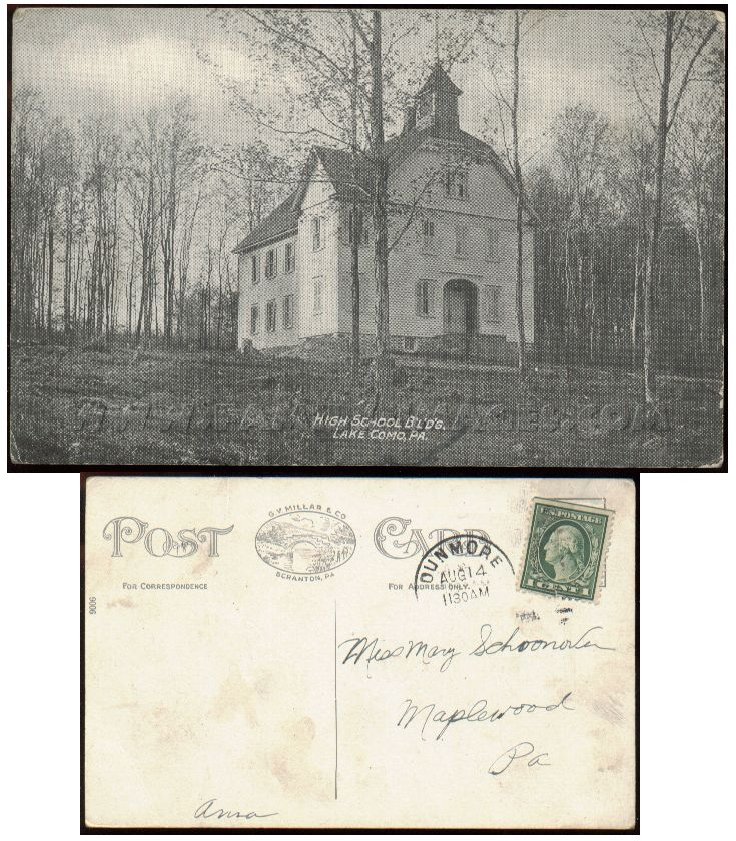 HIGH SCHOOL BLD'G.
LAKE COMO, PA.
POST CARD
G. V. MILLAR & CO
SCRANTON, PA
FOR CORRESPONDENCE
FOR ADDRESS ONLY.
9006
DUNMORE
AUG 14
1130AM
U.S. POSTAGE
1 CENT 1
Miss Mary Schoonover
Maplewood
Pa
Anna